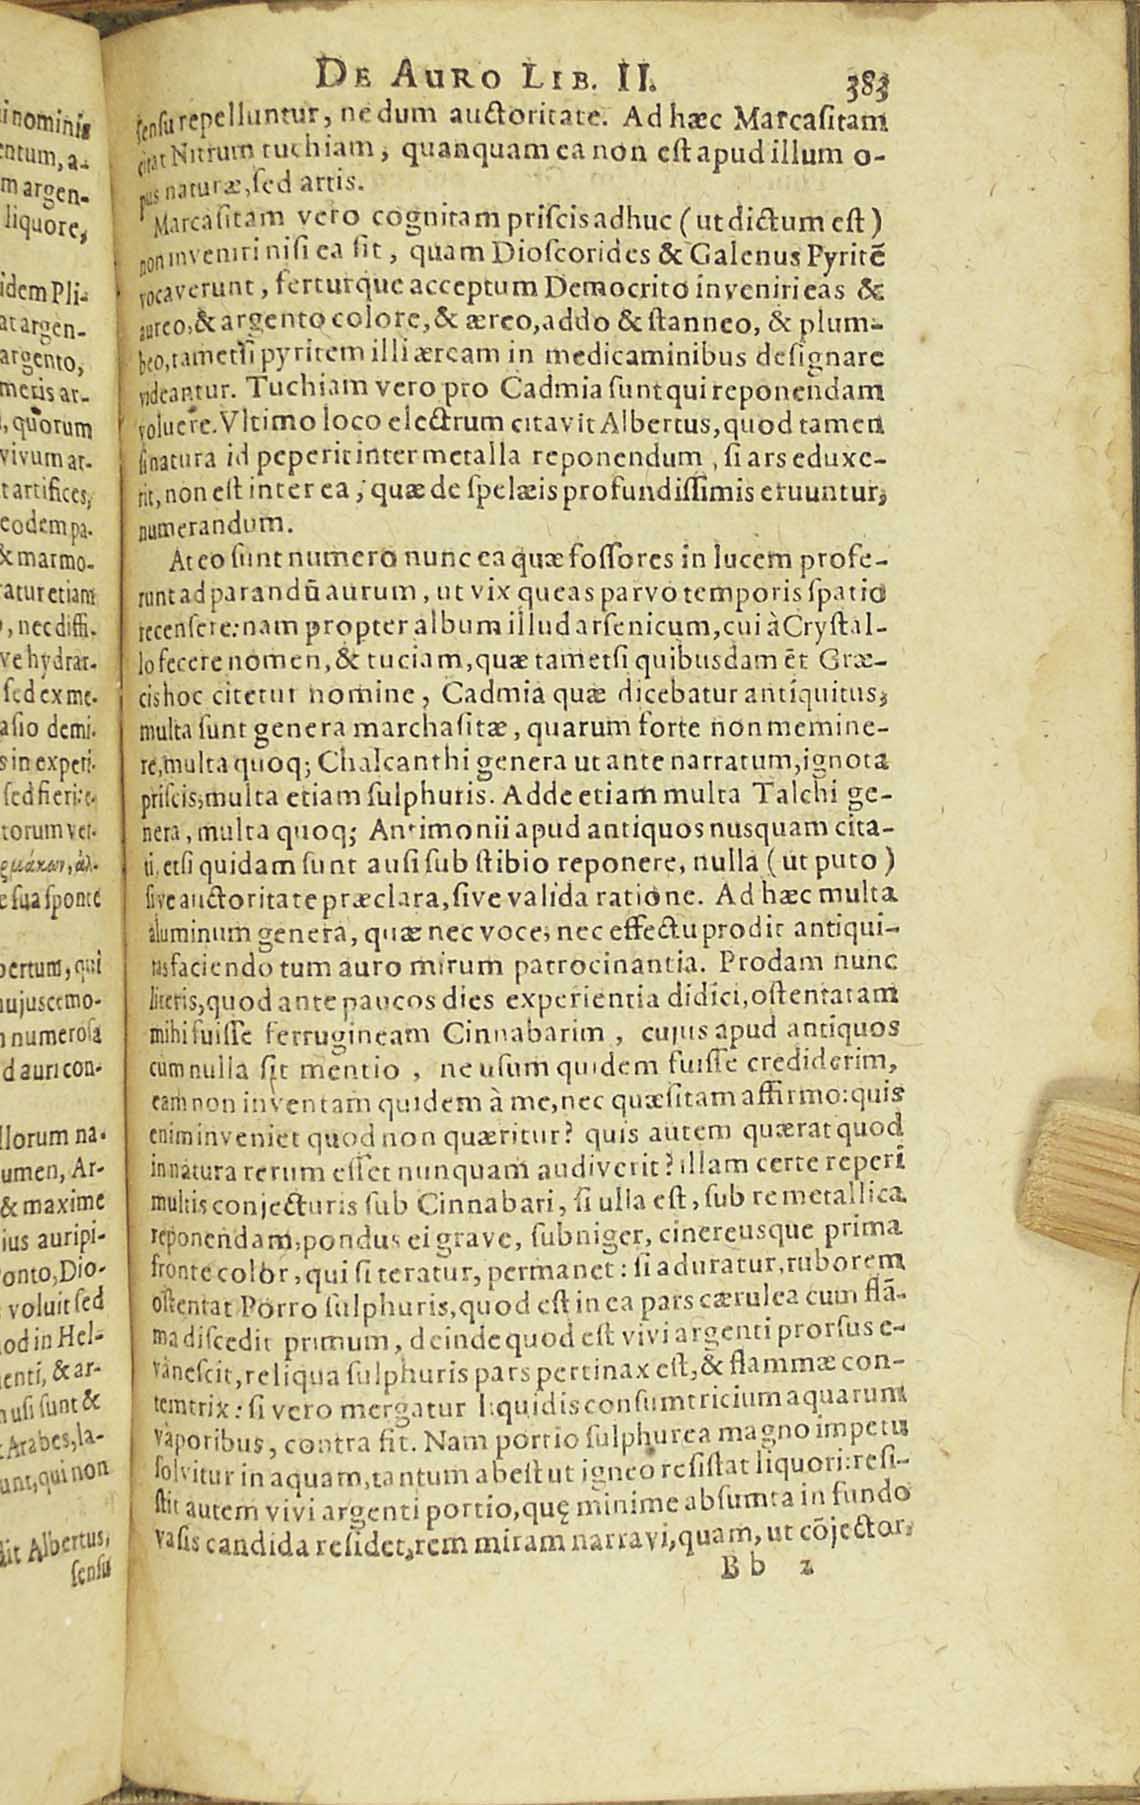 i nominis
entum, a-
m argen-
liquore,
idem Pli-
at argen-
argento,
meris ar-
, quorum
vivum ar-
t artifices,
eodem pa-
& marmo-
ratur etiam
, nec diffi-
ve hydrar-
sed ex me-
asio demi-
s in experi-
sed fieri: e-
torum ver-
e sua sponte
bertum, qui
hujuscemo-
numerosa
d auri con-
llorum na-
umen, Ar-
& maxime
ius auripi-
onto, Dio-
voluit sed
od in Hel-
enti, & ar-
usi sunt &
Arabes, la-
unt, qui non
dit Albertus,
sensu
DE AURO LIB. II. 383
sensu repelluntur, nedum auctoritate. Ad hæc Marcasitam
citat Nitrum tuchiam, quanquam ea non est apud illum o-
pus naturæ, sed artis.
Marcasitam vero cognitam priscis adhuc (ut dictum est)
non inveniri nisi ea sit, quam Dioscorides & Galenus Pyritē
vocaverunt, ferturque acceptum Democrito inveniri eas &
aureo, & argento colore, & æreo, addo & stanneo, & plum-
beo, tametsi pyritem illi æream in medicaminibus designare
videantur. Tuchiam vero pro Cadmia sunt qui reponendam
voluere. Vltimo loco electrum citavit Albertus, quod tamen
si natura id peperit inter metalla reponendum, si ars eduxe-
rit, non est inter ea, quæ de spelæis profundissimis eruuntur,
numerandum.
At eo sunt numero nunc ea quæ fossores in lucem profe-
runt ad parandū aurum, ut vix queas parvo temporis spatio
recensere: nam propter album illud arsenicum, cui à Crystal-
lo fecere nomen, & tuciam, quæ tametsi quibusdam ēt Græ-
cis hoc citetur nomine, Cadmia quæ dicebatur antiquitus,
multa sunt genera marchasitæ, quarum forte non memine-
re, multa quoq; Chalcanthi genera ut ante narratum, ignota
priscis, multa etiam sulphuris. Adde etiam multa Talchi ge-
nera, multa quoq; Antimonii apud antiquos nusquam cita-
ti, etsi quidam sunt ausi sub stibio reponere, nulla (ut puto)
sive auctoritate præclara, sive valida ratione. Ad hæc multa
aluminum genera, quæ nec voce, nec effectu prodit antiqui-
tas faciendo tum auro mirum patrocinantia. Prodam nunc
literis, quod ante paucos dies experientia didici, ostentatam
mihi fuisse ferrugineam Cinnabarim, cujus apud antiquos
cum nulla sit mentio, ne usum quidem fuisse crediderim,
eam non inventam quidem à me, nec quæsitam affirmo: quis
enim inveniet quod non quæritur? quis autem quærat quod
in natura rerum esset nunquam audiverit? illam certe reperi
multis conjecturis sub Cinnabari, si ulla est, sub re metallica
reponendam, pondus ei grave, subniger, cinereusque prima
fronte color, qui si teratur, permanet: si aduratur, ruborem
ostentat Porro sulphuris, quod est in ea pars cærulea cum flā-
ma discedit primum, deinde quod est vivi argenti prorsus e-
vanescit, reliqua sulphuris pars pertinax est, & flammæ con-
temtrix: si vero mergatur liquidis consumtricium aquarum
vaporibus, contra fit. Nam portio sulphurea magno impetu
solvitur in aquam, tantum abest ut igneo resistat liquori: resi-
stit autem vivi argenti portio, quę minime absumta in fundo
vasis candida residet, rem miram narravi, quam, ut cōjector,
Bb 2